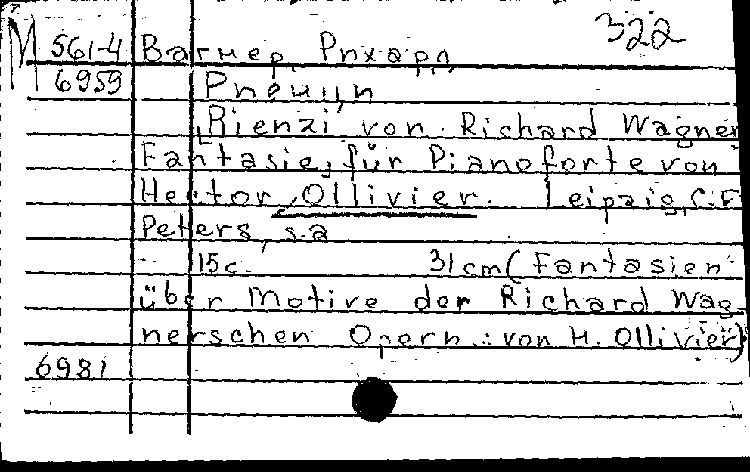 322
М 561-4 Вагнер, Рихард
6959 Риенци
[Rienzi von Richard Wagner
Fantasie, für Pianoforte von
Hector Ollivier. Leipzig, C.F.
Peters, s.a
15c. 31cm (Fantasien
über Motive der Richard Wag-
nerschen Opern : von H. Ollivier)
6981